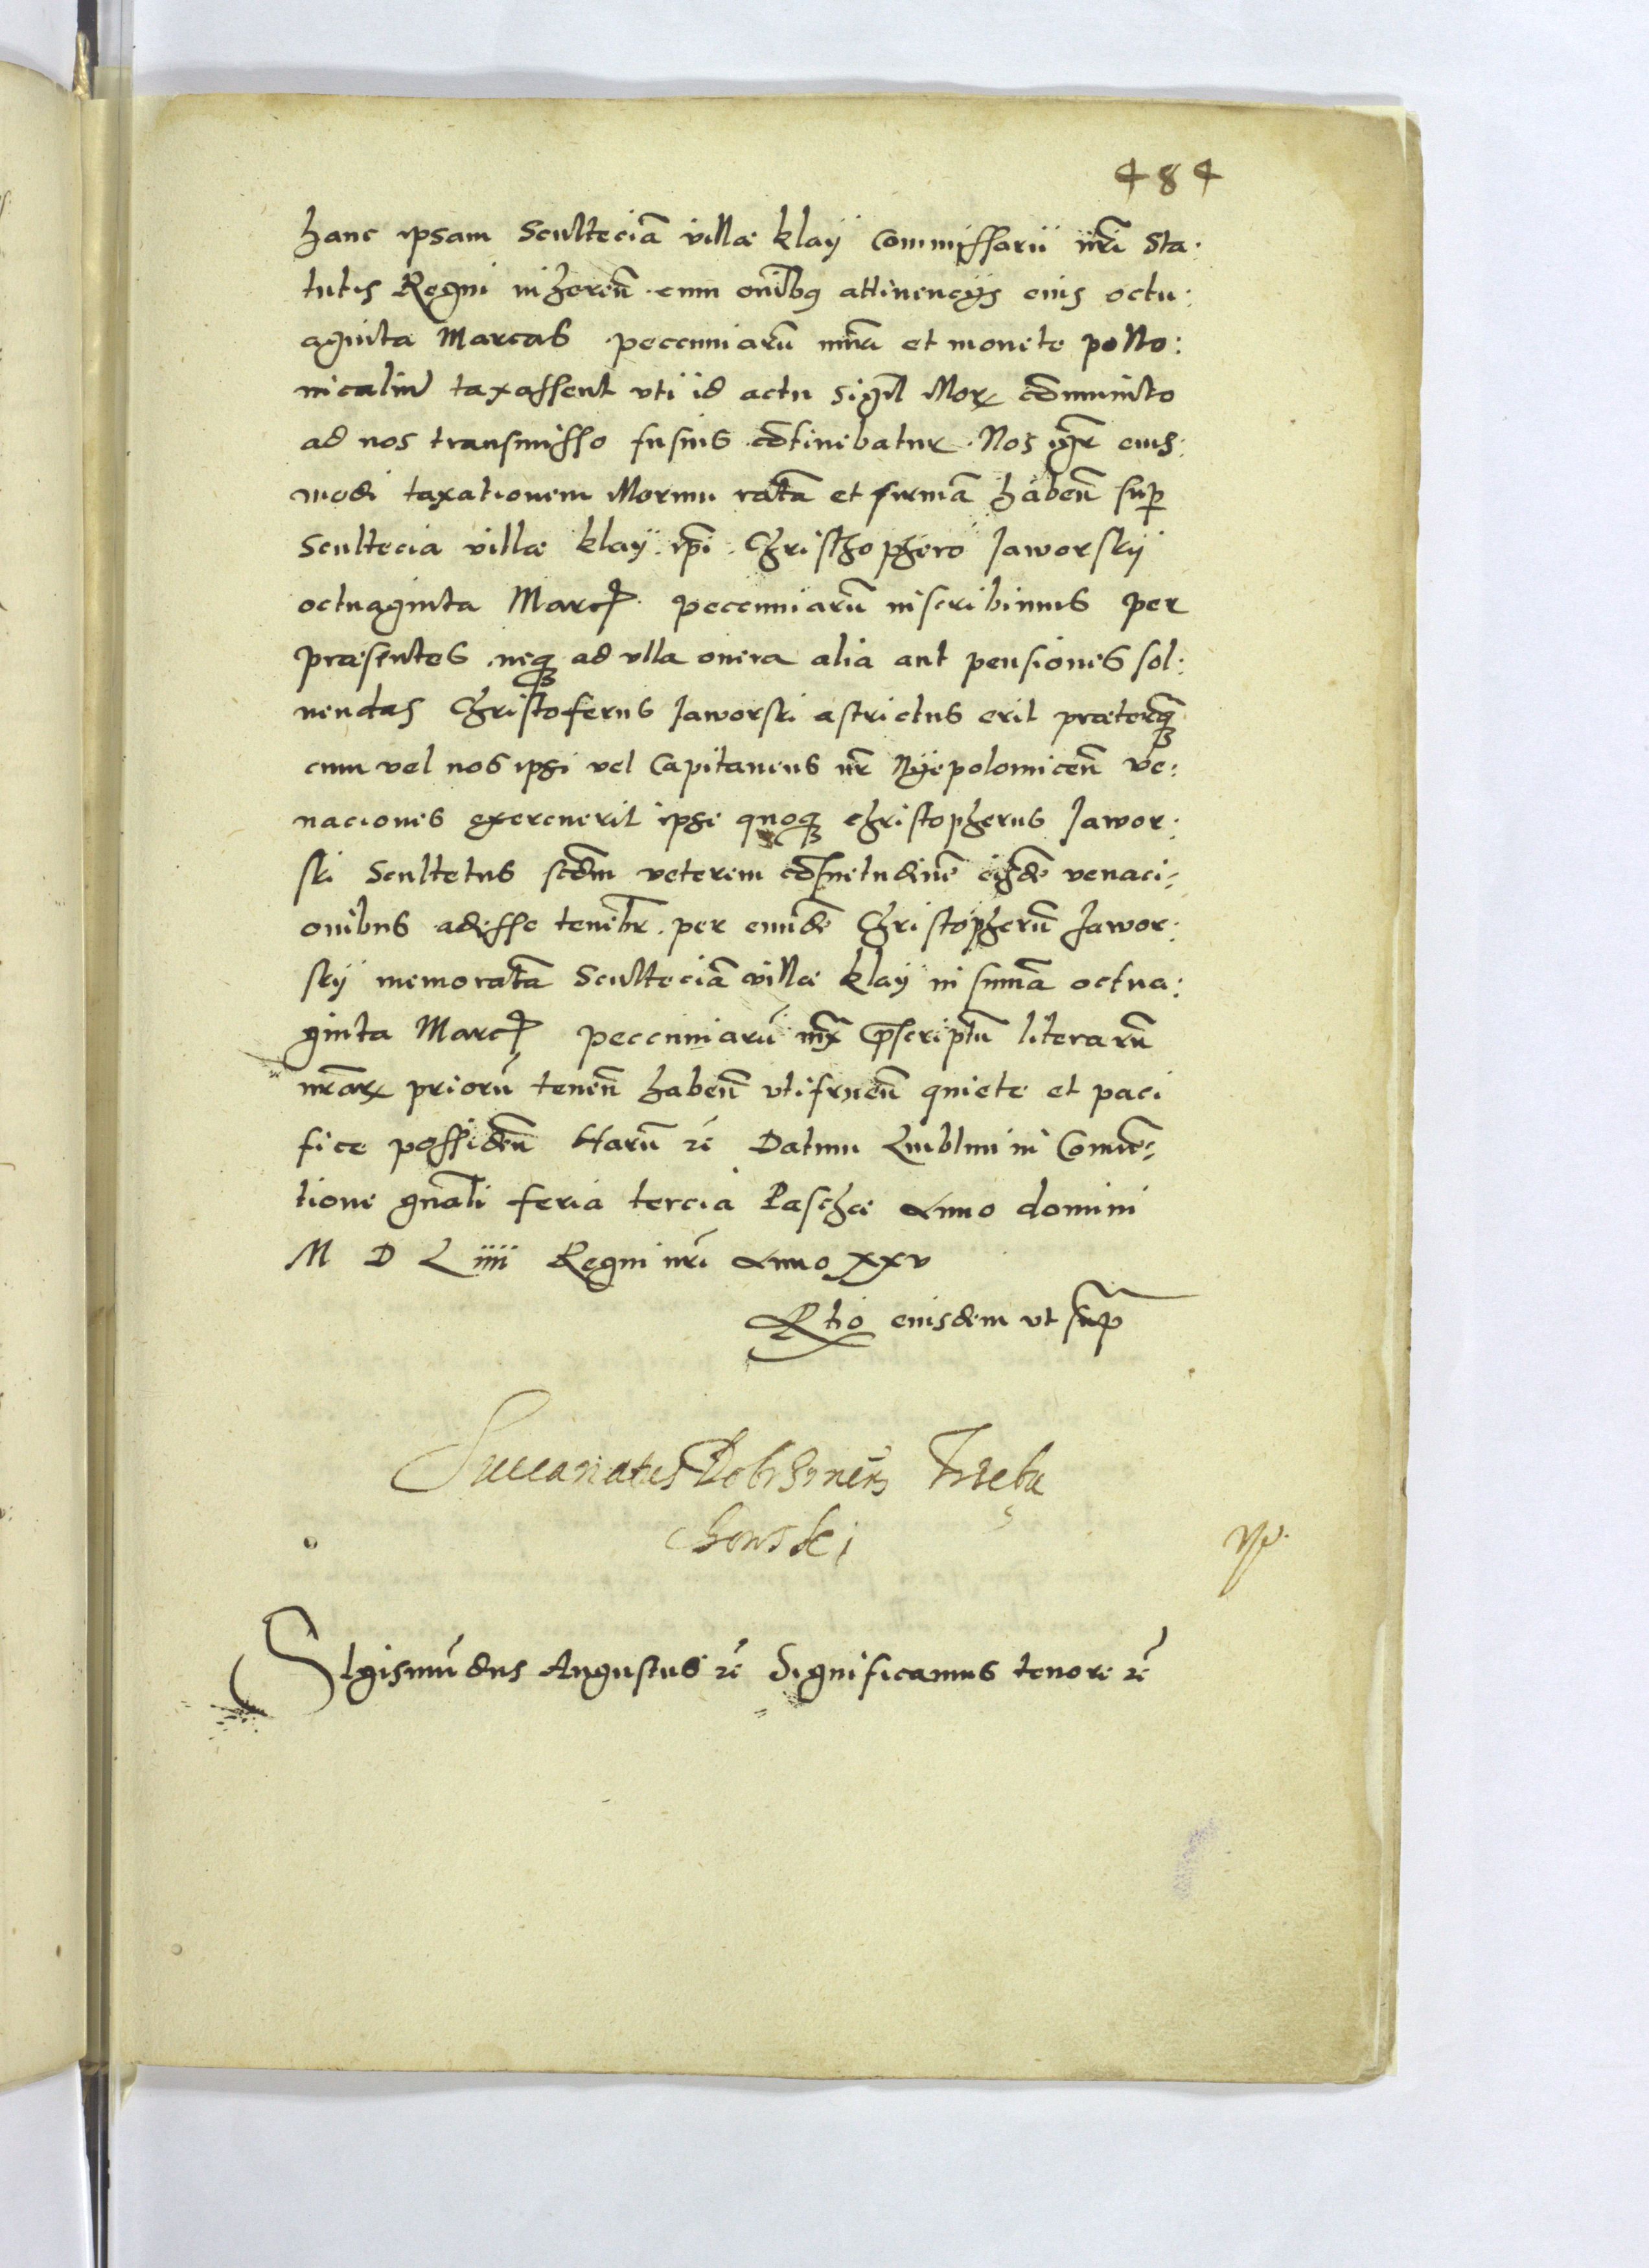 484
hanc ipsam Sculteciã villæ klaÿ Commissarii nr̃i Sta:
tutis Regni inheren̄ cum om̃ibus attinencÿs eius octu:
aginta Marcas pecuniarũ nũri et monete pollo:
nicaliũ taxassent vti id actu Sigill Mox cõmunito
ad nos transmisso fusius cõtinebatur. Nos igr̃ eius:
modi taxationem Mormu ratã et firmã habeñ sup
Scultecia villæ klaÿ ip̃i Christhophero Jaworskÿ
octuaginta Marc pecuniarũ inscribimus per
præsentes neq ad vlla onera alia aut pensiones sol:
uendas Christoferus Jaworski astrictus erit præterq̃
cum vel nos ipsi vel Capitaneus nr̃ Nÿepolomiceñ ve:
naciones exercuerit ipse quoq christopherus Jawor:
ski Scultetus scdm veterem cõsuetudinẽ eisdẽ venaci:
onibus adesse tenebr. per eundẽ Christopherũ Jawor:
skÿ memoratã Sculteciã villæ klaÿ in sum̃a octua:
ginta Marc pecuniarũ iux p̃scriptũ literarũ
nr̃ar priorũ teneñ habeñ vtifrueñ quiete et paci
fice possideñ Harũ rẽ Datum Lublini in Conuẽ:
tione gnãli feria tercia Paschæ Anno domini
M D L iiii Regni nr̃i Anno xxv
Rtio eiusdem vt sup̃
Succanatus Dobrzinen Trzebu
chowski
Sigismũdus Augustus rẽ Significamus tenore rẽ